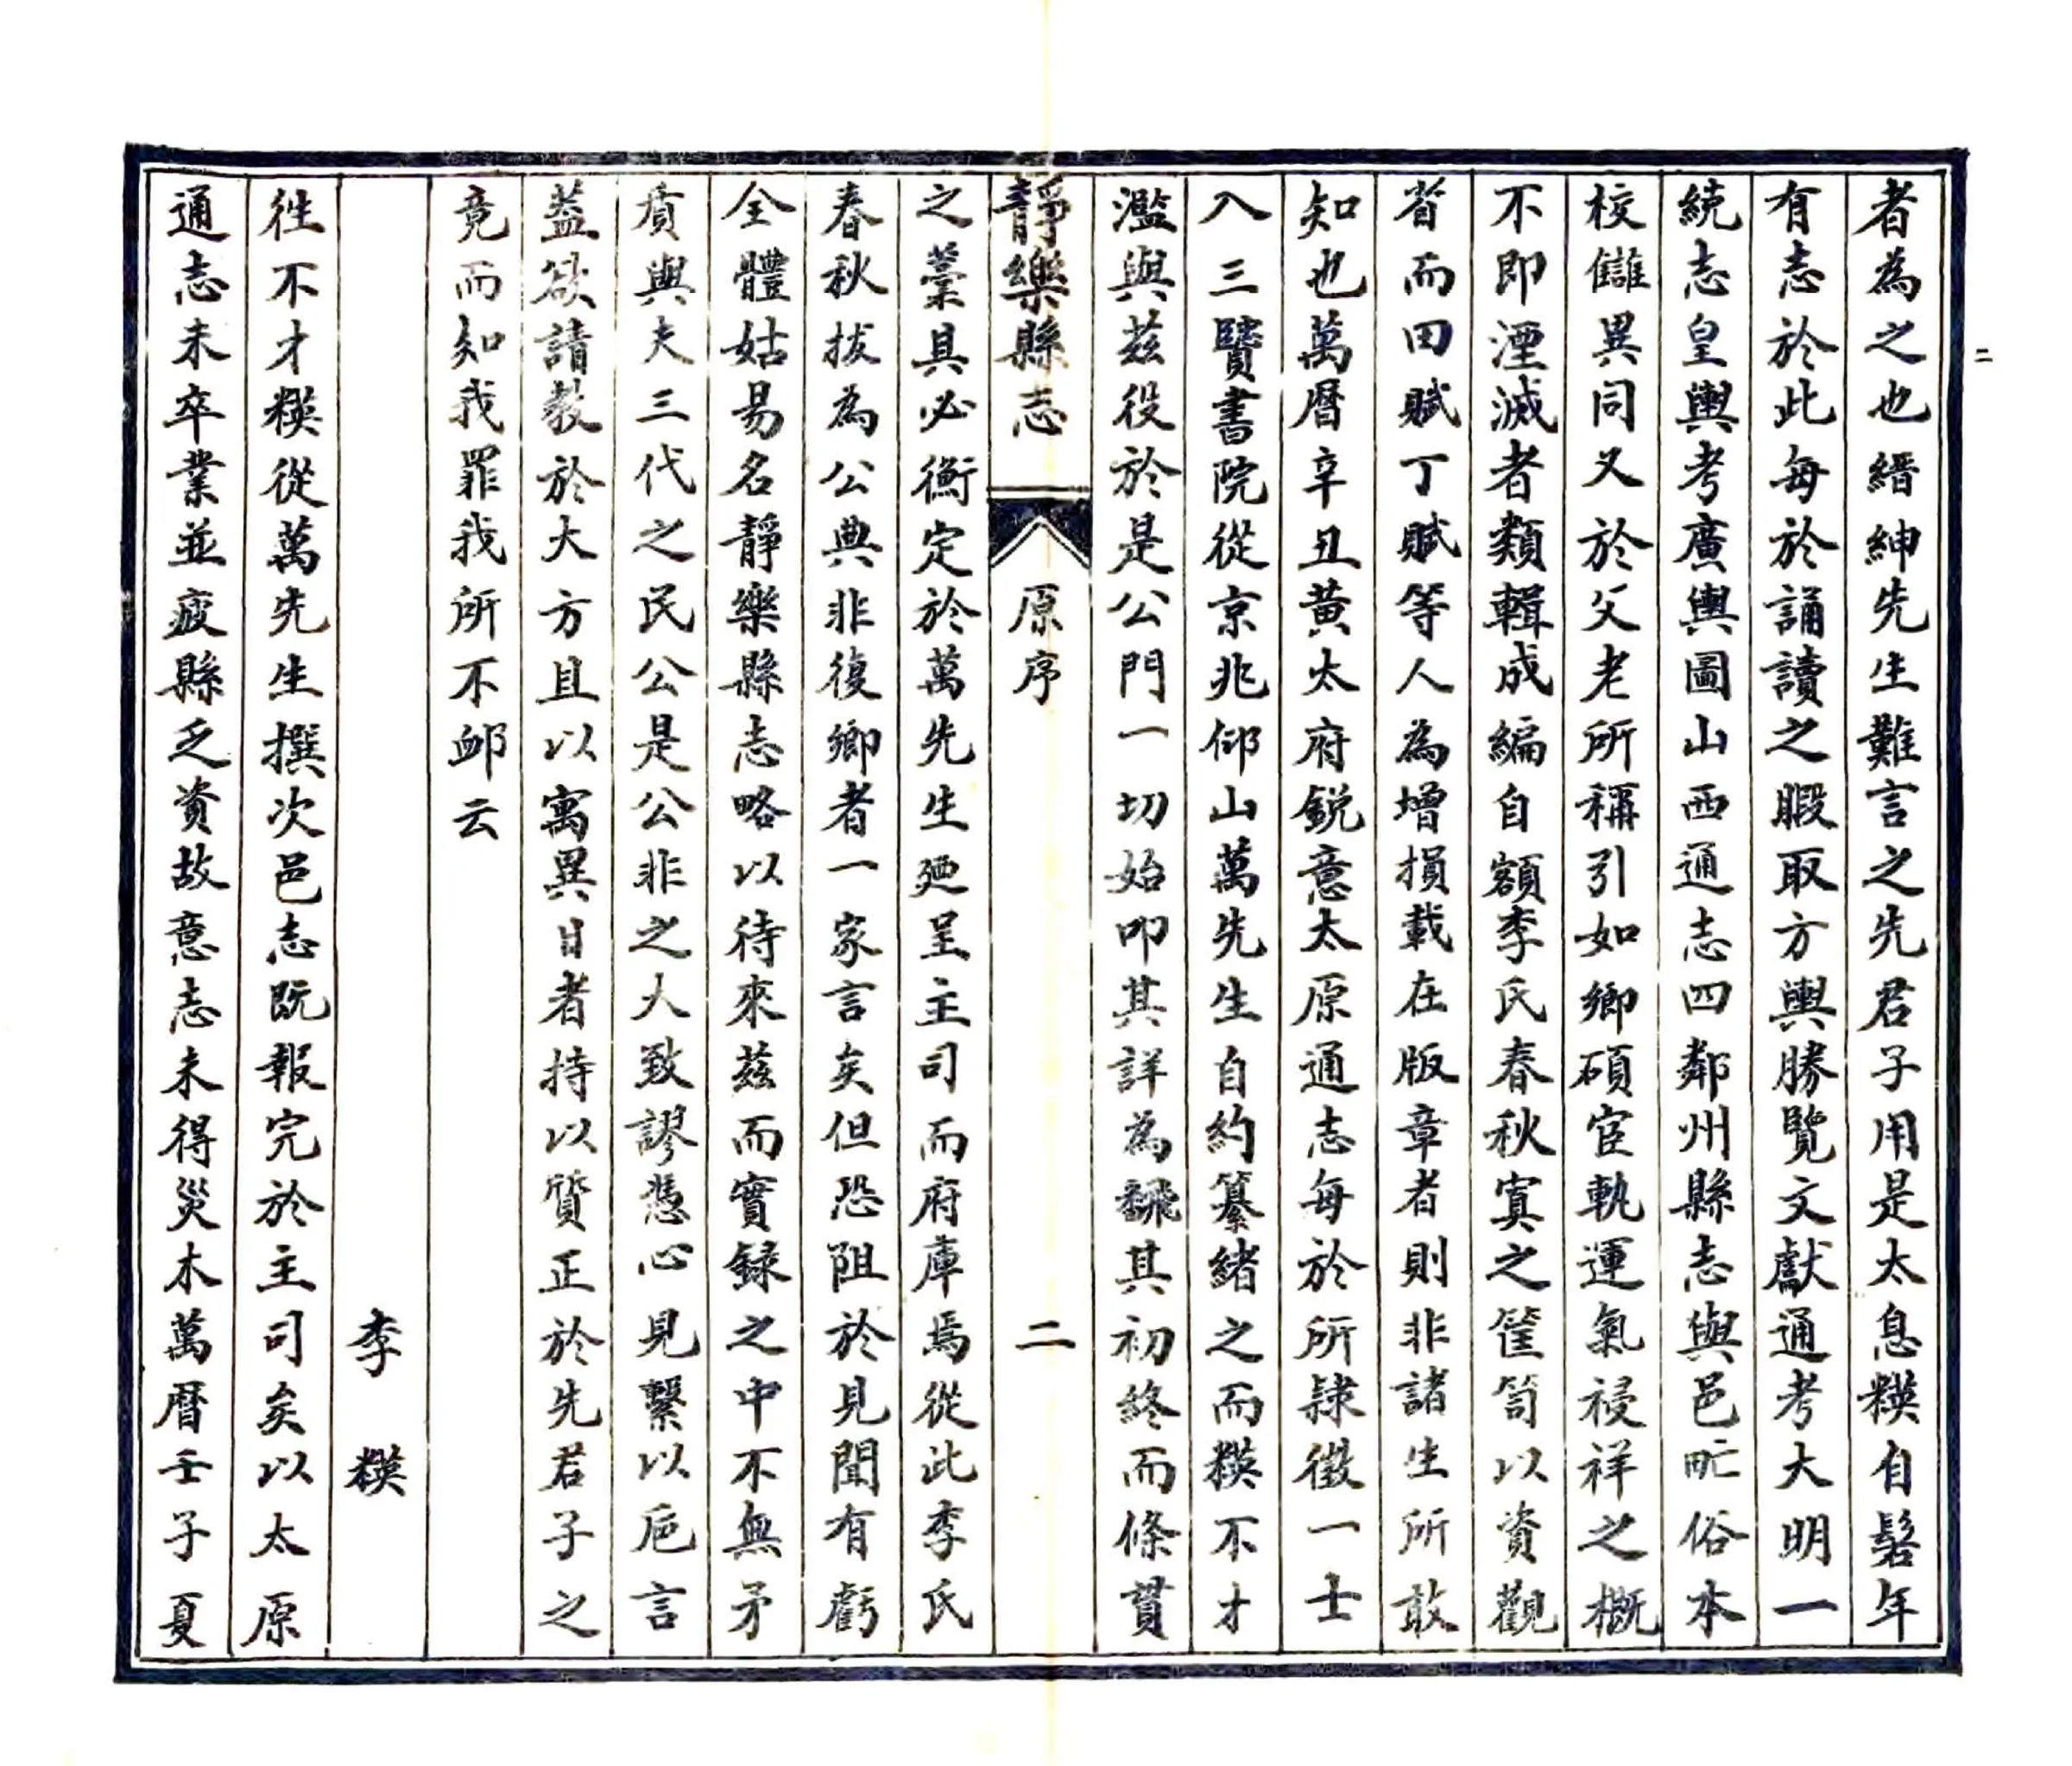 者為之也縉紳先生難言之先君子用是太息䊐自髫年
有志於此每於誦讀之暇取方輿勝覽文獻通考大明一
統志皇輿考廣輿圖山西通志四鄰州縣志與邑甿俗本
校讎異同又於父老所稱引如鄉碩宦軌運氣祲祥之概
不即湮滅者類輯成編自額李氏春秋寘之筐笥以資觀
省而田賦丁賦等人為增損載在版章者則非諸生所敢
知也萬曆辛丑黃太府銳意太原通志每於所隷徵一士
入三賢書院從京兆仰山萬先生自約纂緒之而䊐不才
濫與茲役於是公門一切始叩其詳為飜其初終而條貫
靜樂縣志
原序
二
之藁具必衡定於萬先生廼呈主司而府庫焉從此李氏
春秋拔為公典非復鄉者一家言矣但恐阻於見聞有虧
全體姑易名靜樂縣志略以待來茲而實錄之中不無矛
盾與夫三代之民公是公非之人致謬憑心見繫以巵言
蓋欲請教於大方且以寓異日者持以質正於先君子之
竟而知我罪我所不卹云
李䊐
徃不才䊐從萬先生撰次邑志既報完於主司矣以太原
通志未卒業並疲縣乏資故意志未得災木萬曆壬子夏
二